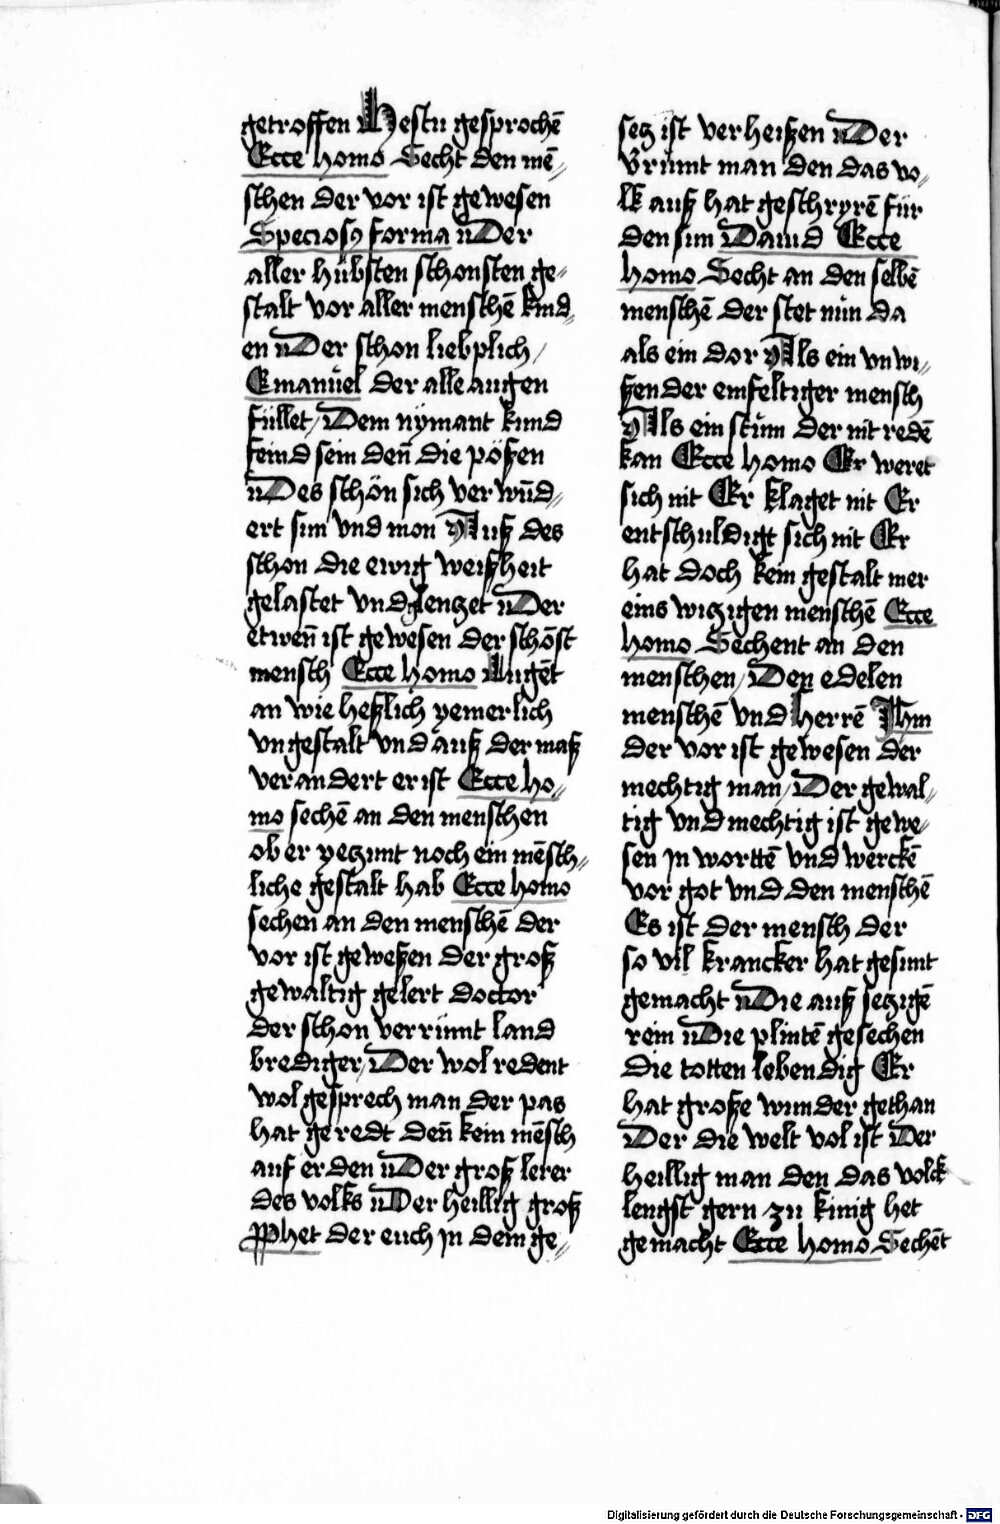 getroffen Hestu gesprochē
Ecce homo Secht den mē⸗
schen der vor ist gewesen
Speciosꝯ forma Der
aller hübsten schonsten ge⸗
stalt vor aller menschē kind⸗
en Der schon lieplich /
Emanuel der alle augen
füllet / Dem nÿmant kund
feind sein deñ die pößen
Des schön sich verwūd⸗
ert sun vnd mon Auß des
schon die ewig weißheit
gelastet vnd glenczet Der
etweñ ist gewesen der schōst
mensch Ecce homo Lugēt
an wie heßlich yemerlich
vngestalt vnd auß der maß
verandert er ist Ecce ho⸗
mo sechē an den menschen
ob er yeczunt noch ein mēsch⸗
liche gestalt hab Ecce homo
sechen an den menschē der
vor ist geweßen der groß
gewaltig gelert doctor
der schon verrümt land
brediger / Der wol redent
wol gesprech man der pas
hat geredt deñ kein mēsch
auf erden Der groß lerer
des volks Der heillig groß
ꝓphet der euch jn dem ge⸗
secz ist verheißen Der
Brümt man den das vo⸗
lk auß hat geschryrē für
den sun Dauid Ecce
homo Secht an den selbē
menschē der stet nün da
als ein dor Als ein vnwi⸗
ßender einfeltiger mensch
Als ein stüm der nit redē
kan Ecce homo Er weret
sich nit Er klaget nit Er
entschuldigt sich nit Er
hat doch kein gestalt mer
eins wiczigen menschē Ecce
homo Sechent an den
menschen / Den edelen
menschē vnd herrē Jhm
der vor ist gewesen der
mechtig man / Der gewal⸗
tig vnd mechtig ist gewe⸗
sen jn wortē vnd werckē
vor got vnd den menschē
Es ist der mensch der
so vil krancker hat gesunt
gemacht Die auß seczigē
rein Die plintē gesechen
die totten lebendig Er
hat große wunder gethan
Der die welt vol ist Der
heillig man den das volck
lengst gern zu kinig het
gemacht Ecce homo Sechēt
Digitalisierung gefördert durch die Deutsche Forschungsgemeinschaft - DFG